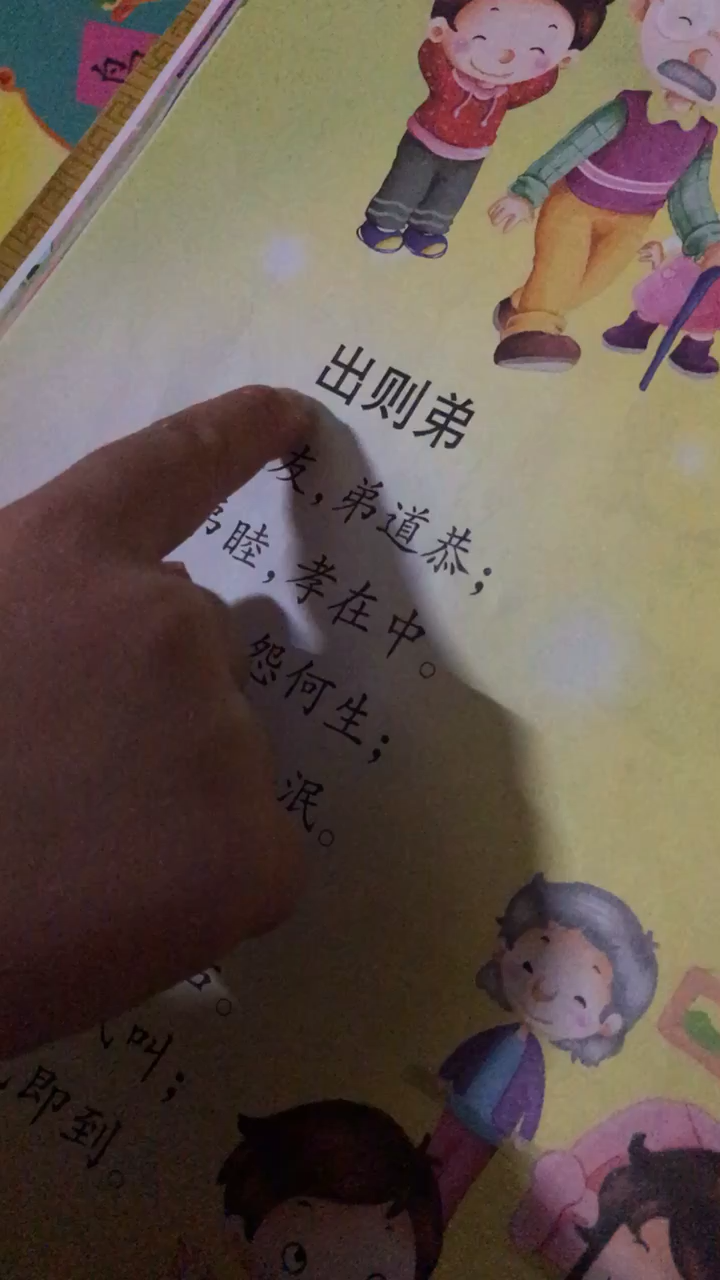 出则弟
友，弟道恭；
睦，孝在中。
怨何生；
泯。
叫；
即到。